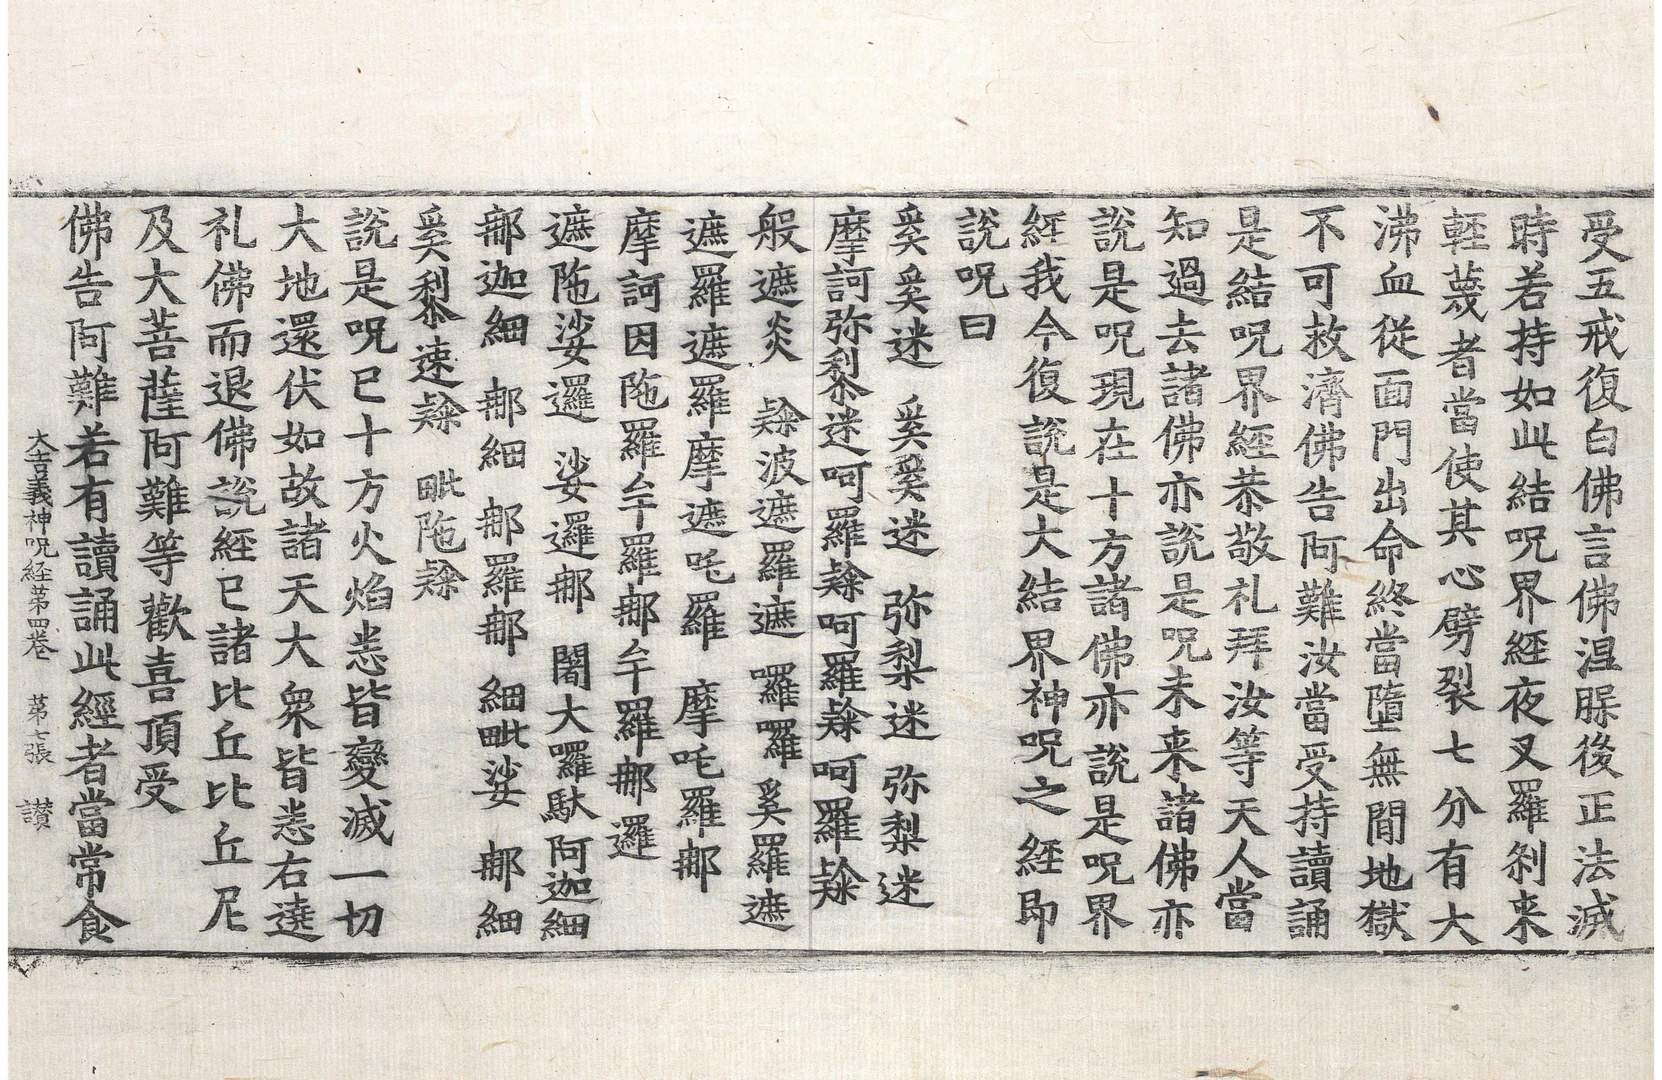 受五戒復白佛言佛涅脲後正法滅
時若持如此結呪界經夜叉羅剎来
輕蔑者當使其心劈裂七分有大
沸血從面門出命終當墮無間地獄
不可救濟佛告阿難汝當受持讀誦
是結呪界經恭敬礼拜汝等天人當
知過去諸佛亦說是呪未来諸佛亦
說是呪現在十方諸佛亦說是呪界
經我今復說是大結界神呪之經即
說呪曰
奚奚迷 奚奚迷 弥梨迷 弥梨迷
摩訶弥梨迷呵羅㝹呵羅㝹呵羅㝹
般遮炎 㝹波遮羅遮 囉囉奚羅遮
遮羅遮羅摩遮吒羅 摩吒羅那
摩訶因陁羅牟羅那牟羅那邏
遮陁娑邏 娑邏那 闍大囉馱阿迦細
那迦細 那細 那羅那 細毗娑 那細
奚梨速㝹 毗陁㝹
說是呪已十方火焰悉皆變滅一切
大地還伏如故諸天大衆皆悉右遶
礼佛而退佛說經已諸比丘比丘尼
及大菩薩阿難等歡喜頂受
佛告阿難若有讀誦此經者當常食
大吉義神呪経第四卷 第七張 讃